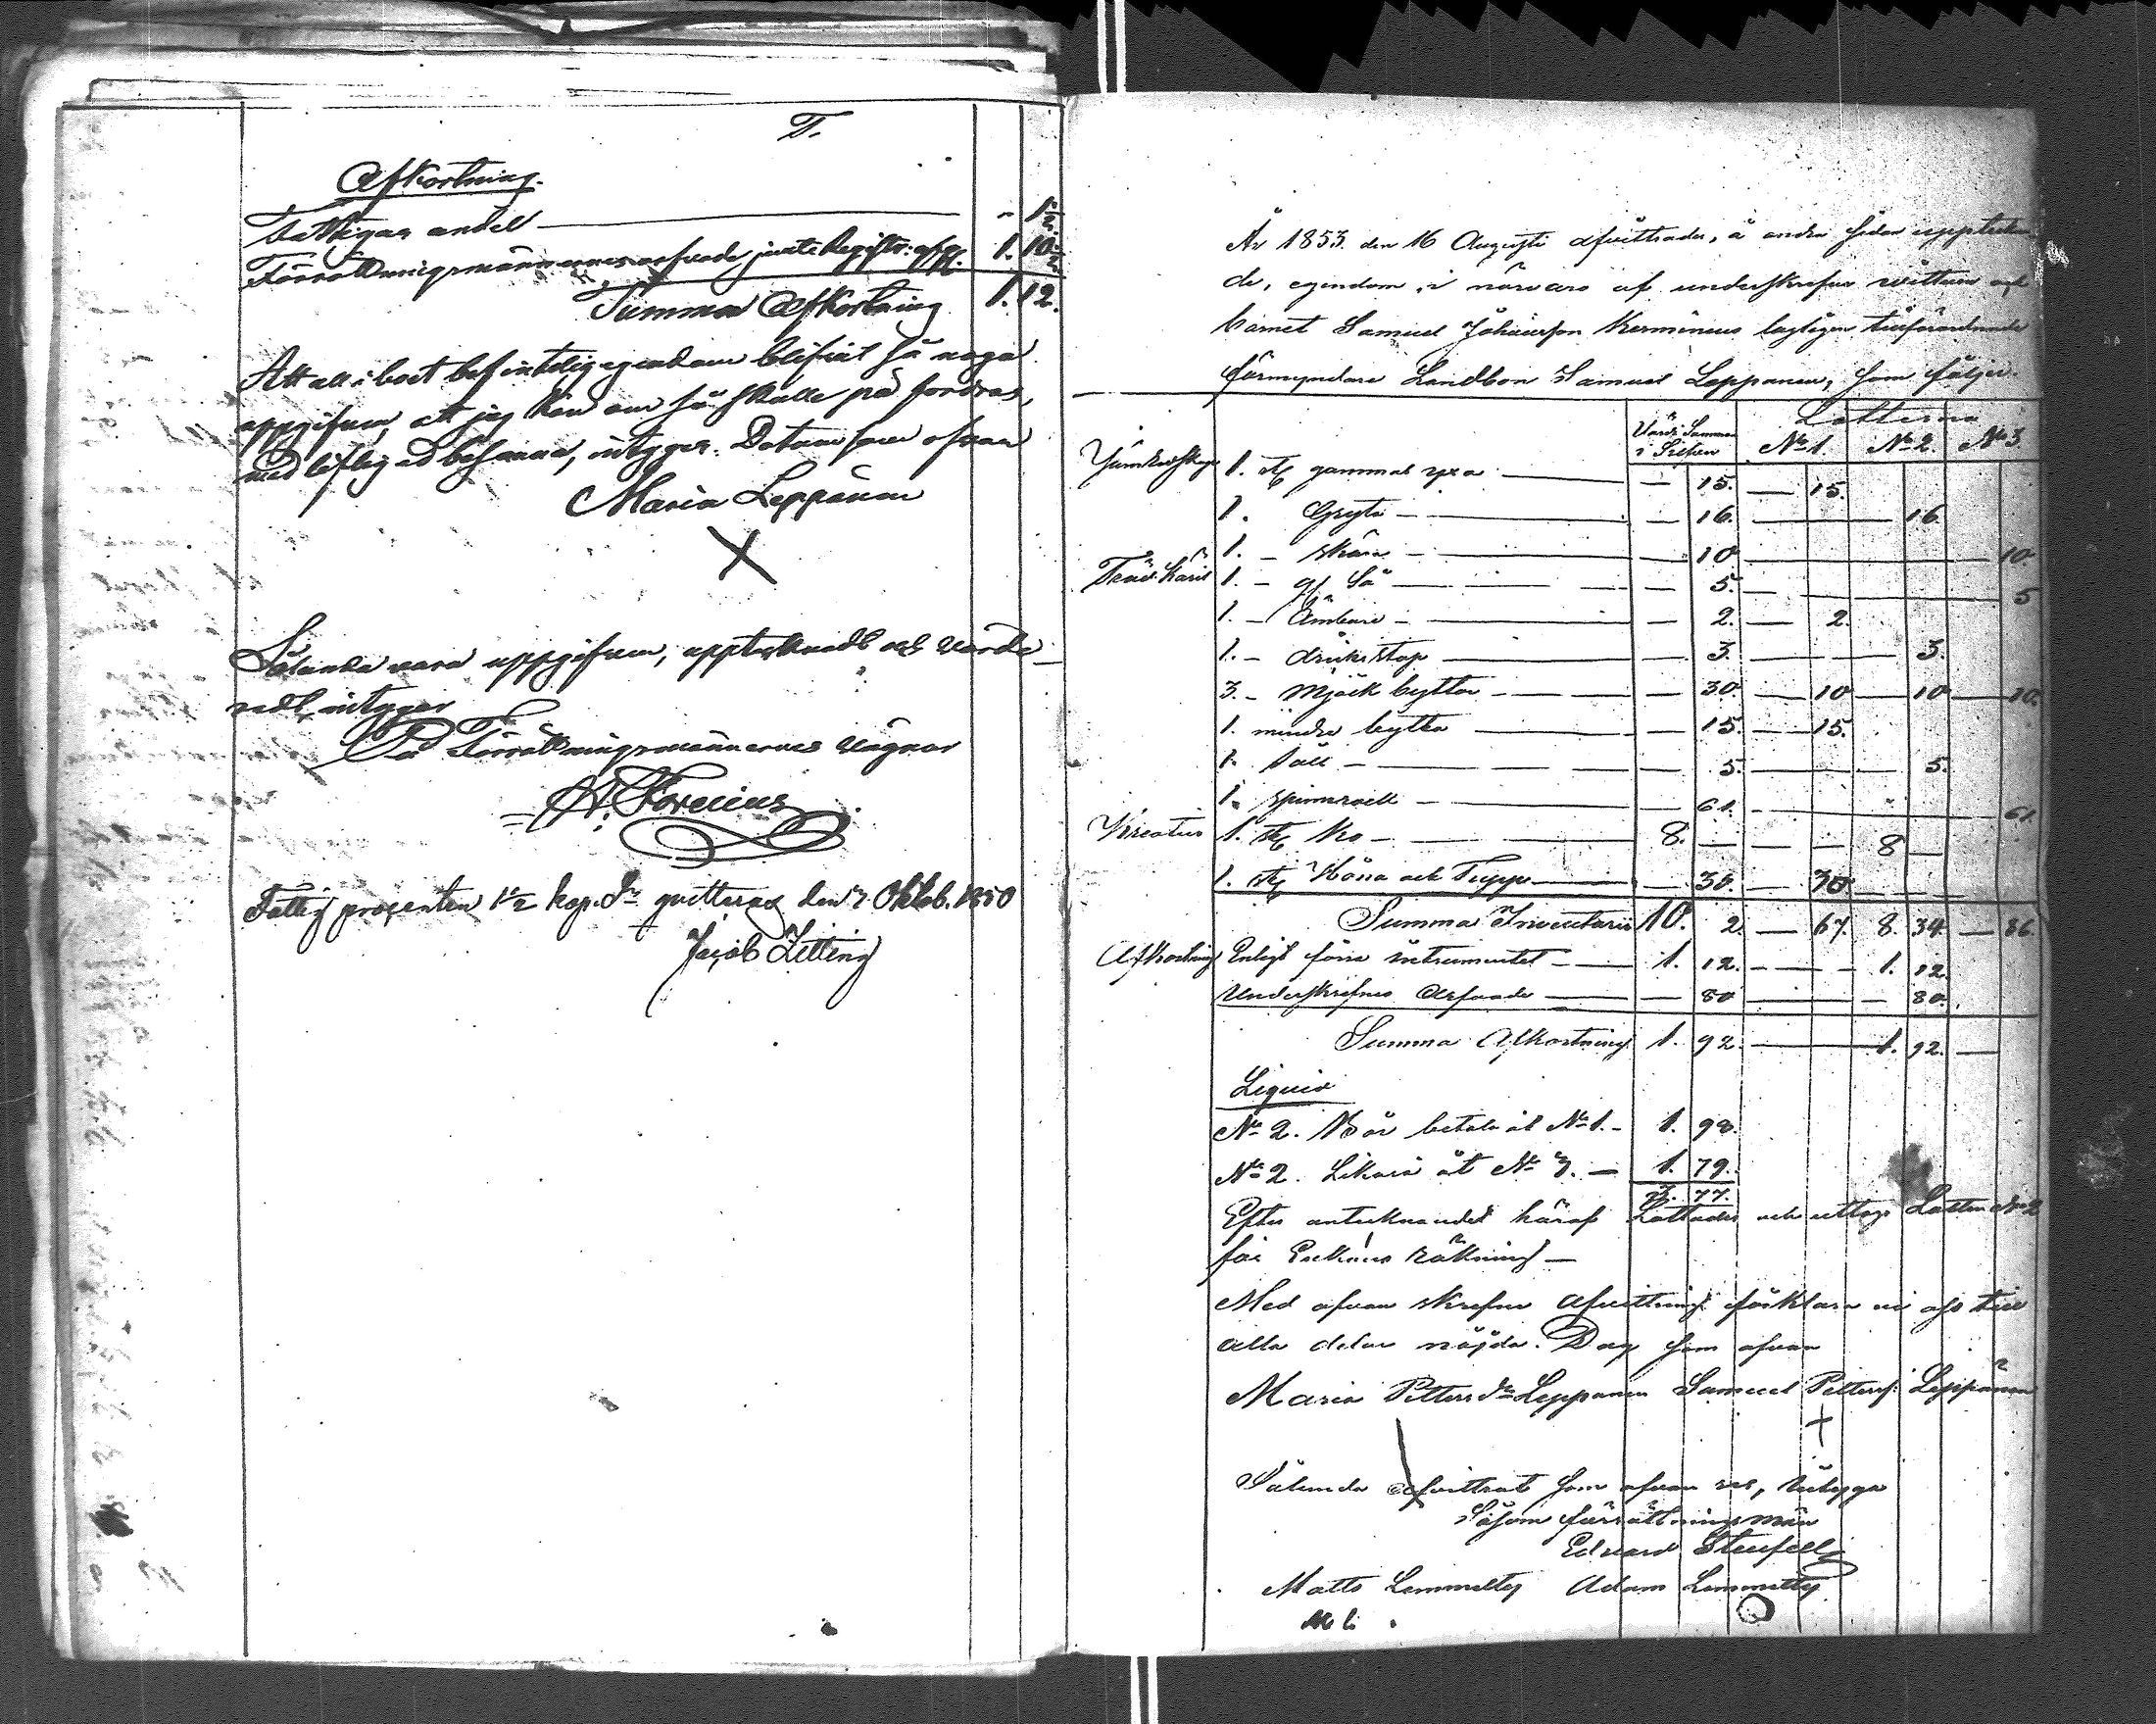 T.
Afkortning.
Fattigas andel — - 1½
Förrättningsmännernes arfvode jemte Registr: afg. 1. 10½
Summa Afkortning 1. 12.
Att all i boet befintelig egendom blifvit så noga
uppgifven, att jag kan om så skulle på fordras,
med liflig ed besanna, intygar. Datum som ofvan
Maria Leppänen
X
Sålunda vara uppgifven, upptecknadt och värde-
radt, intygar
På Förrättningsmännernes vägnar
A. Forcius
Fattig procenten 1½ kop. Sr qvitteras den 7 Oktob. 1850
Jacob Zitting
År 1853 den 16 Augusti afvittrades, å andra sidan uppteckna
de, egendom, i närvaro af underskrefne vittnen och
barnet Samuel Johansson Kerminens lagligen tillförordnade
förmyndare Landbon Samuel Leppänen, som följer.
Lotterna
Värde Summa i Silfver No 1. No 2. No 3.
Jernredskap 1. st gammal yxa — 15. — 15.
1. Gryta — 16. — 16.
1. - skära — 10 — 10.
Träd Käril 1. - gl Så — 5. — 5
1. - Ämbare — 2. — 2.
1. - drickstop — 3. — 3.
3. - Mjölk byttor — 30. — 10 — 10 — 10.
1. mindre bytta — 15. — 15.
1. Såll — 5. — 5.
1. spinnrock — 61. — 61.
Kreatur 1. st Ko — 8. — 8 —
1. st Höna och Tupp — 30. — 30
Summa Inventarii 10. 2. — 67. 8. 34 — 86.
Afkortning Enligt förra instrumentet — 1. 12. — 1. 12.
Underskrefnes Arfvode — 80 — 80.
Summa Afkortning 1. 92. — 1. 92. —
Liquid
No 2. Bör betala åt No 1. - 1. 98.
No 2. Likaså åt No 3. — 1. 79.
3. 77.
Efter antecknandet häraf Lottades och uttogs Lotten No 2
för Enkans räkning —
Med ofvan skrefne Afvittring förklara vi oss till
alla delar nöjda. Dag som ofvan
Maria Pettersdr Leppänen Samuel Petterss. Leppänen
+
Sålunda afvittrat som ofvan ses, intyga
Såsom förrättningsmän
Edvard Stenfelt
Matts Lemmetty Adam Lemmetty
M L